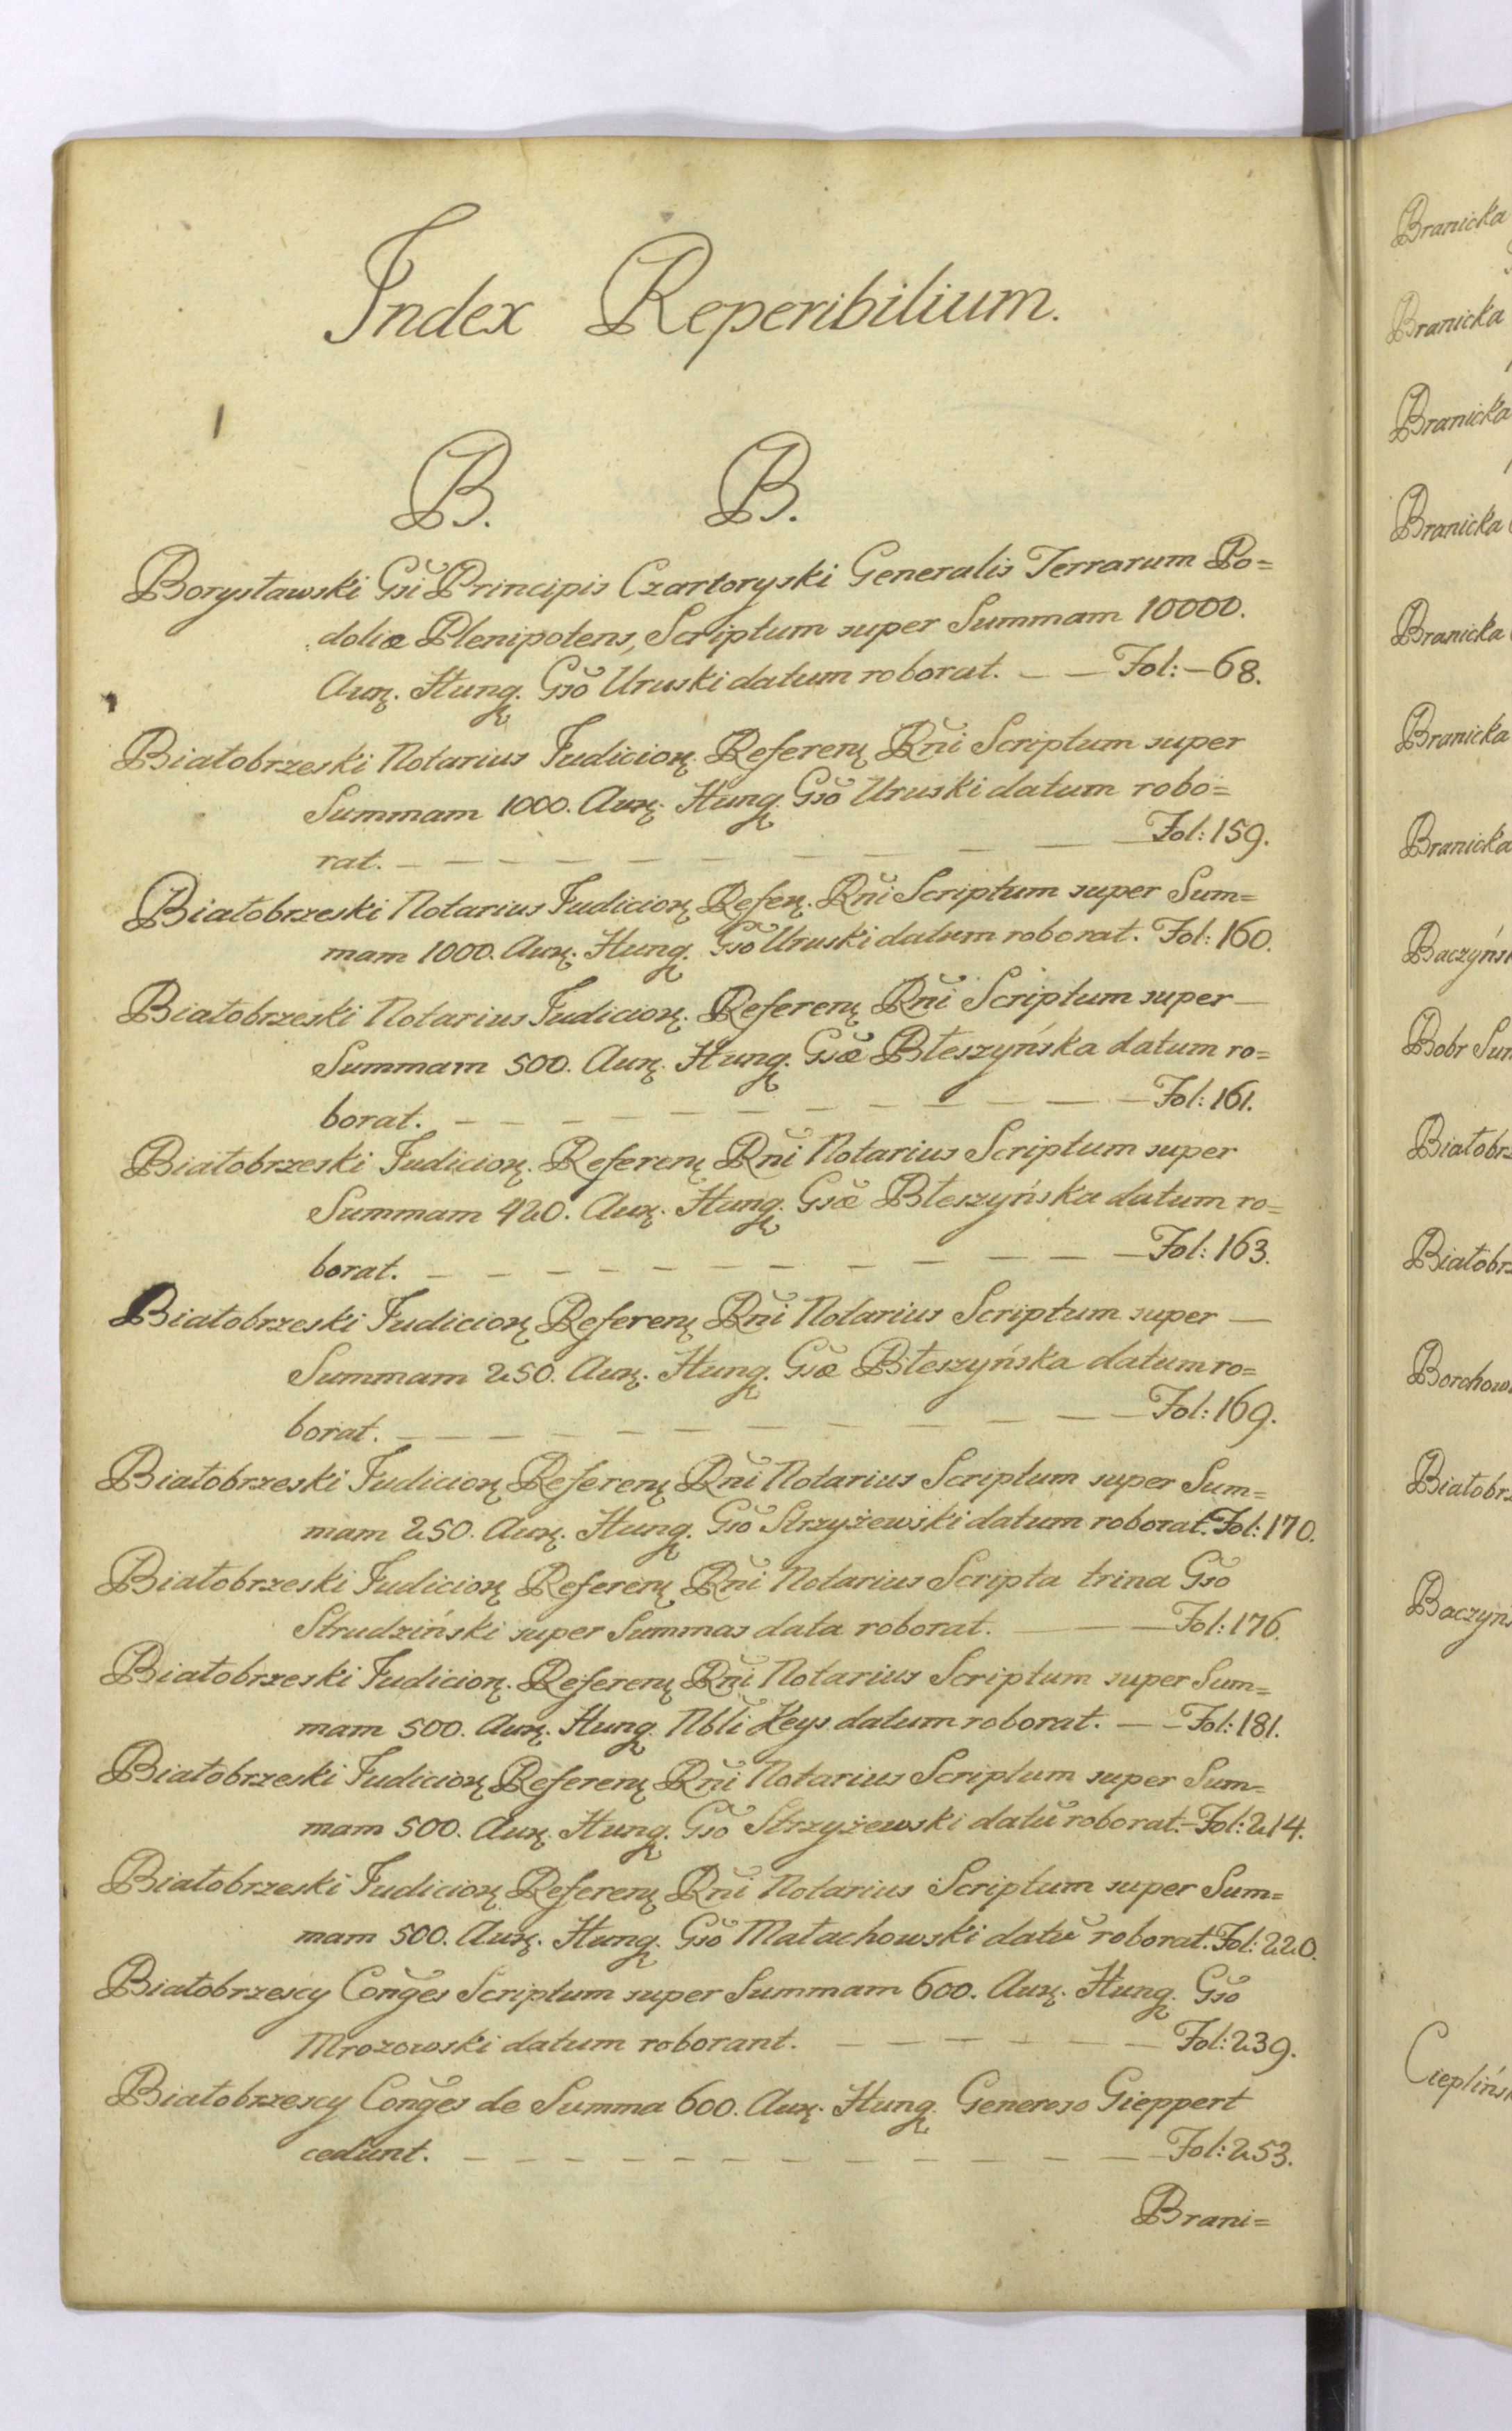 Index Reperibilium.
B. B.
Borysławski Gsi Principis Czartoryski Generalis Terrarum Po=
doliæ Plenipotens, Scriptum super Summam 10000.
Aurꝝ. Hung. Gso Uruski datum roborat. — — Fol: — 68.
Białobrzeski Notarius Judiciorꝝ. Referenꝝ Rni Scriptum super
Summam 1000. Aurꝝ. Hung. Gso Uruski datum robo=
rat. — — — — — — — — — — Fol: 159.
Białobrzeski Notarius Judiciorꝝ Referꝝ. Rni Scriptum super Sum=
mam 1000. Aurꝝ. Hung. Gso Uruski datum roborat. Fol: 160.
Białobrzeski Notarius Judiciorꝝ. Referenꝝ Rni Scriptum super —
Summam 500. Aurꝝ. Hung. Gsæ Błeszyńska datum ro=
borat. — — — — — — — — — — Fol: 161.
Białobrzeski Judiciorꝝ. Referenꝝ Rni Notarius Scriptum super
Summam 420. Aurꝝ. Hung. Gsæ Błeszyńska datum ro=
borat. — — — — — — — — — — Fol: 163.
Białobrzeski Judiciorꝝ Referenꝝ Rni Notarius Scriptum super —
Summam 250. Aurꝝ. Hung. Gsæ Błeszyńska datum ro=
borat. — — — — — — — — — — Fol: 169.
Białobrzeski Judiciorꝝ Referenꝝ Rni Notarius Scriptum super Sum=
mam 250. Aurꝝ. Hung. Gso Strzyżewski datum roborat. Fol: 170.
Białobrzeski Judiciorꝝ Referenꝝ Rni Notarius Scripta trina Gso
Strudziński super Summas data roborat. — — — Fol: 176.
Białobrzeski Judiciorꝝ. Referenꝝ Rni Notarius Scriptum super Sum=
mam 500. Aurꝝ. Hung. Nbli Heys datum roborat. — — Fol: 181.
Białobrzeski Judiciorꝝ Referenꝝ Rni Notarius Scriptum super Sum=
mam 500. Aurꝝ. Hung. Gso Strzyżewski datũ roborat. — Fol: 214.
Białobrzeski Judiciorꝝ Referenꝝ Rni Notarius Scriptum super Sum=
mam 500. Aurꝝ. Hung. Gso Małachowski datũ roborat. Fol: 220.
Białobrzescy Conges Scriptum super Summam 600. Aurꝝ. Hung. Gso
Mrozowski datum roborant. — — — — — — Fol: 239.
Białobrzescy Conges de Summa 600. Aurꝝ. Hung. Generoso Gieppert
cedunt. — — — — — — — — — — Fol: 253.
Brani=
Branicka
Branicka
Branicka
Branicka
Branicka
Branicka
Branicka
Baczyńs
Bobr Sum
Białobrz
Białobrz
Borchow
Białobrz
Baczyńs
Cieplińs